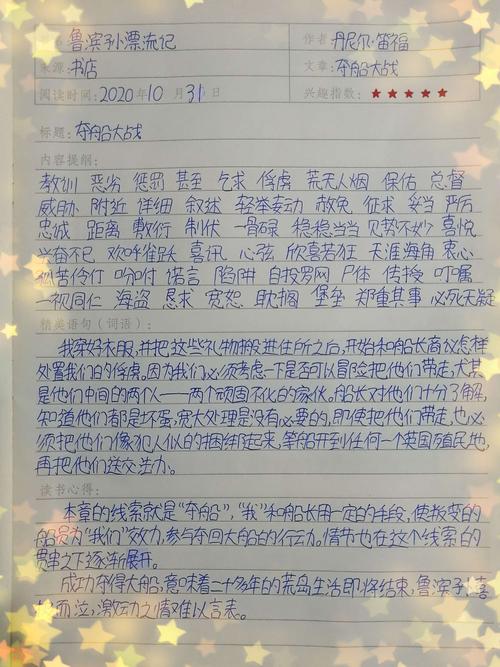 鲁滨孙漂流记 作者:丹尼尔·笛福
来源:书店 文章:夺船大战
阅读时间:2020年10月31日 兴趣指数:★★★★★
标题:夺船大战
内容提纲:
教训 恶劣 惩罚 甚至 乞求 俘虏 荒无人烟 保佑 总督
威胁 附近 详细 叙述 轻举妄动 赦免 征求 妥当 严厉
忠诚 距离 敷衍 制伏 一骨碌 稳稳当当 见势不妙 喜悦
兴奋不已 欢呼雀跃 喜讯 心弦 欣喜若狂 天涯海角 衷心
孤苦伶仃 吩咐 诺言 陷阱 自投罗网 尸体 传授 叮嘱
一视同仁 海盗 恳求 宽恕 耽搁 堡垒 郑重其事 必死无疑
精英语句(词语):
我穿好衣服,并把这些礼物搬进住所之后,开始和船长商议怎样
处置我们的俘虏。因为我们必须考虑一下是否可以冒险把他们带走,尤其
是他们中间的两个——两个顽固不化的家伙。船长对他们十分了解,
知道他们都是坏蛋,宽大处理是没有必要的,即使把他们带走,也必
须把他们像犯人似的捆绑起来,等船开到任何一个英国殖民地,
再把他们送交法办。
读书心得:
本章的线索就是“夺船”,“我”和船长用一定的手段,使叛变的
船员为“我们”效力,参与夺回大船的行动。情节也在这个线索的
贯串之下逐渐展开。
成功夺得大船,意味着二十多年的荒岛生活即将结束,鲁滨孙喜
而泣,激动之情难以言表。